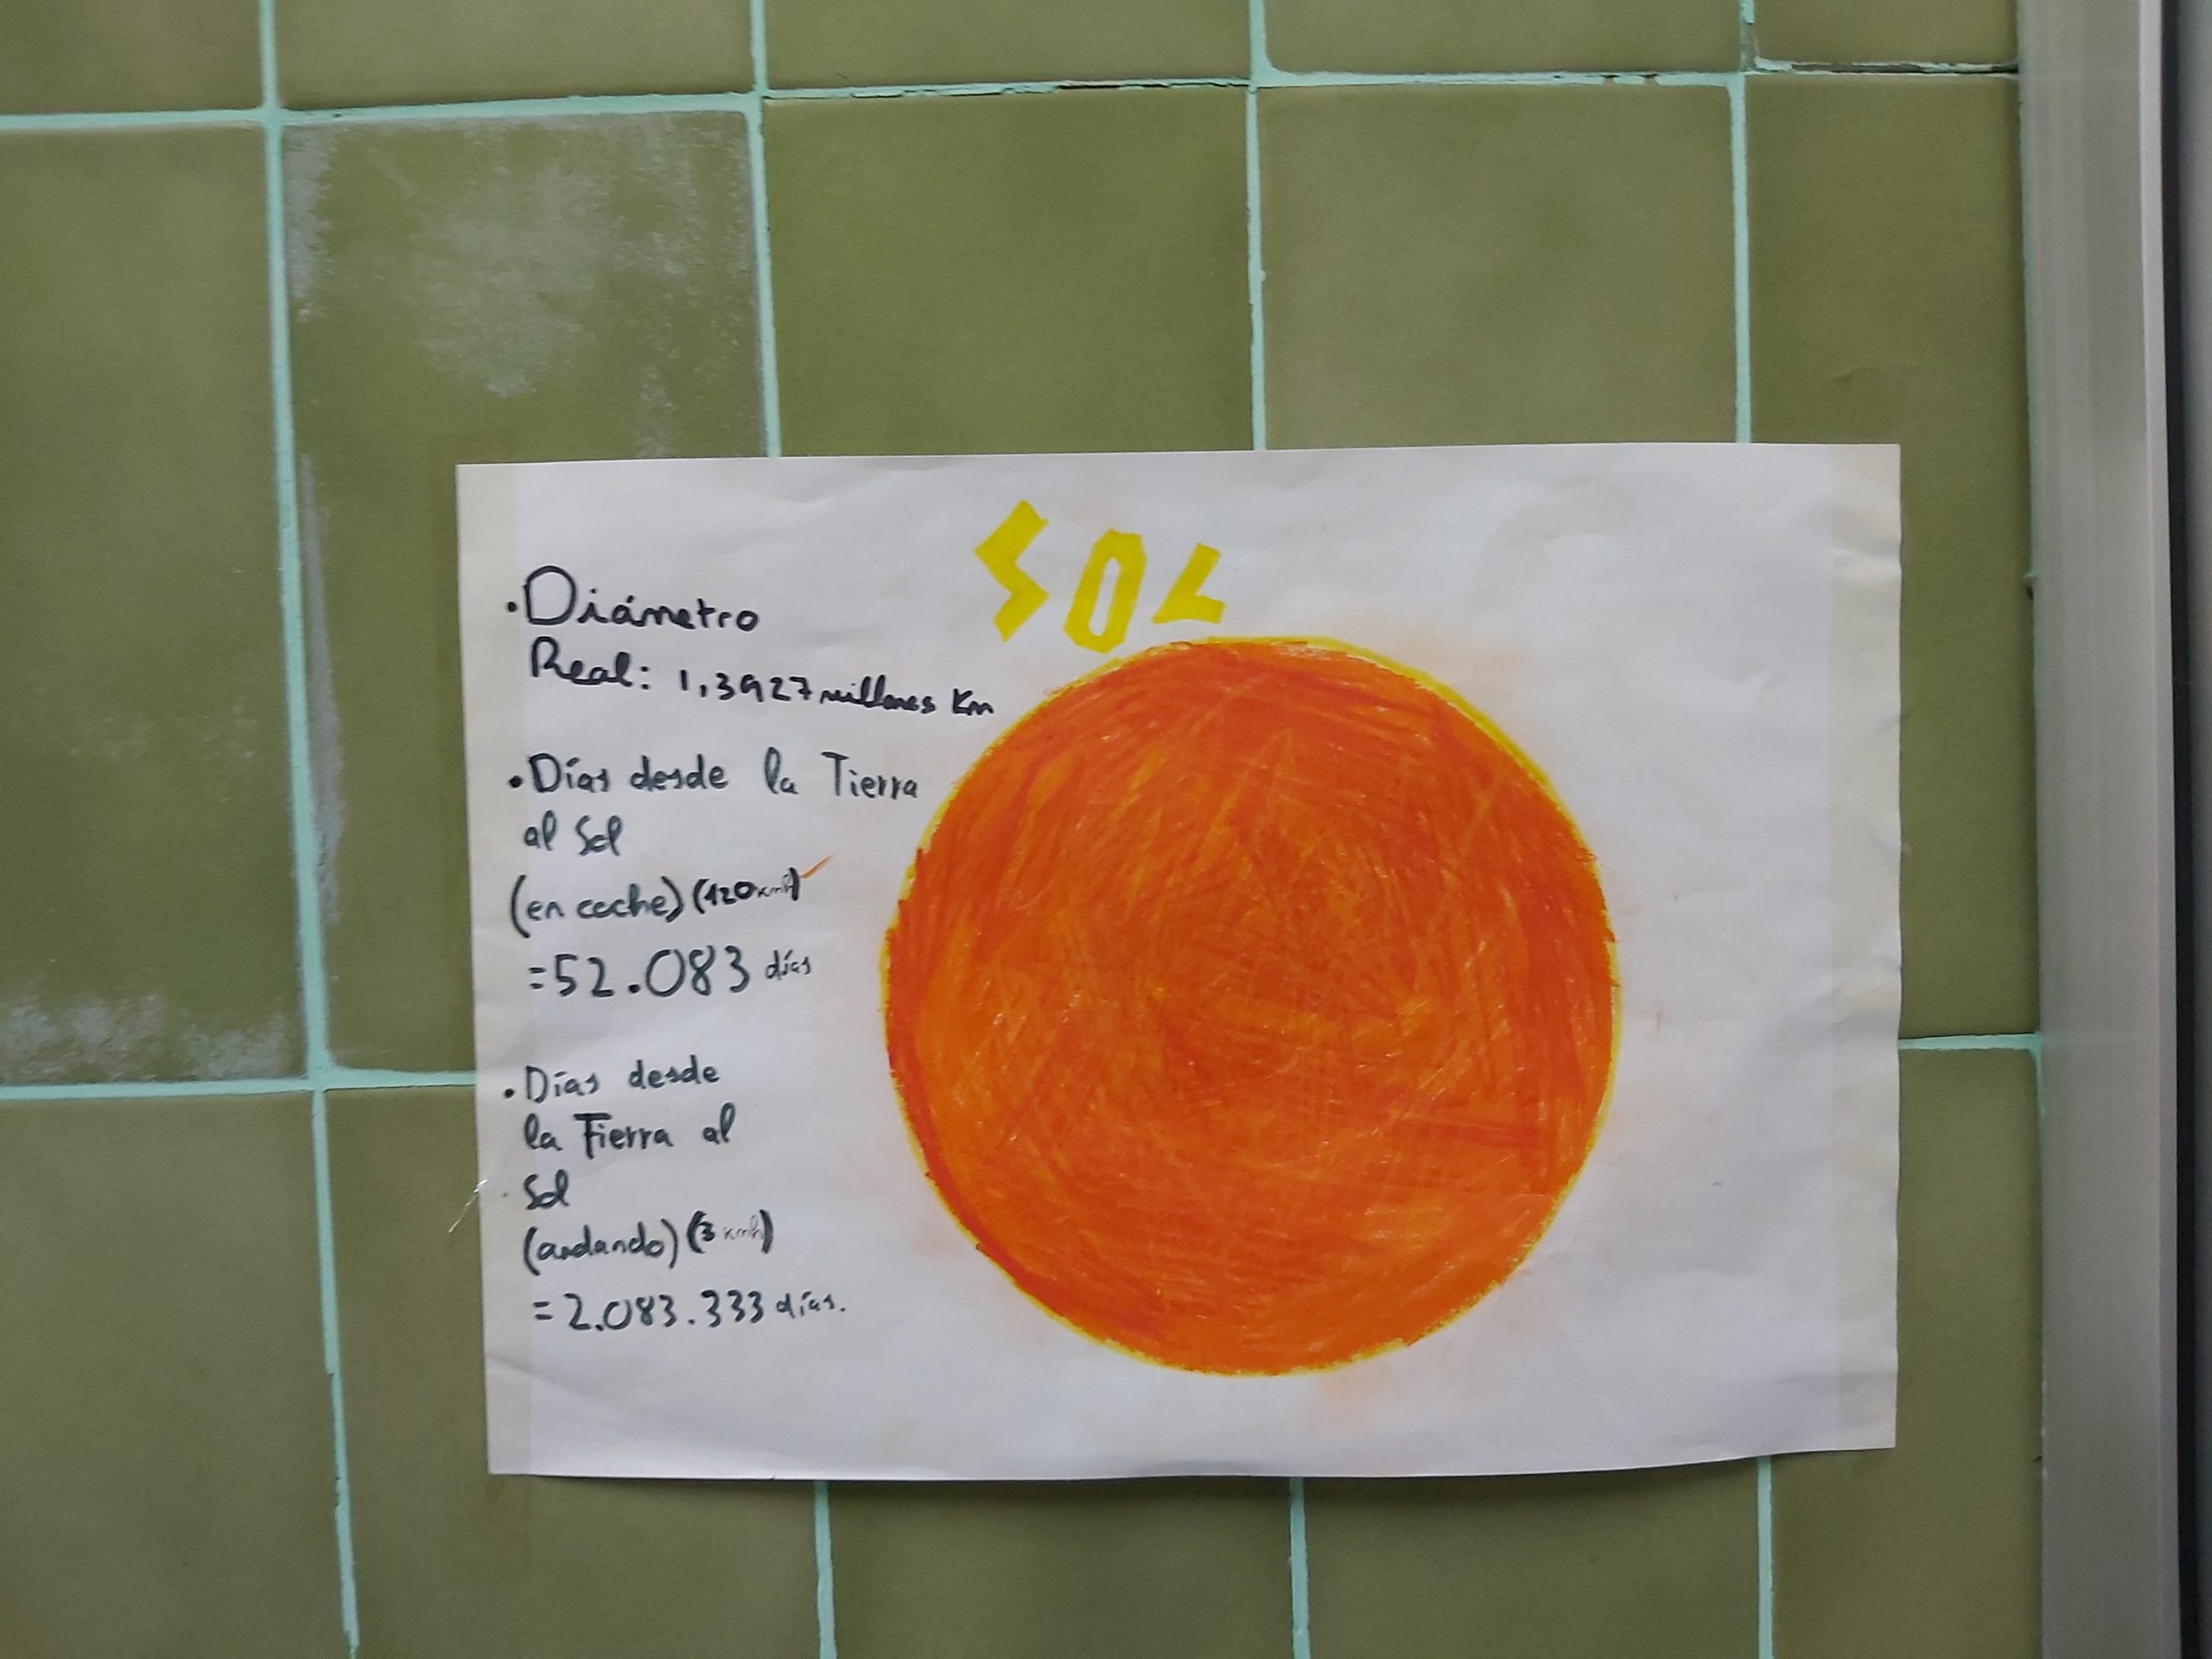 SOL
• Diámetro
Real: 1,3927 millones Km
• Días desde la Tierra
al Sol
(en coche) (120 kmh)
= 52.083 días
• Días desde
la Tierra al
Sol
(andando) (3 kmh)
= 2.083.333 días.